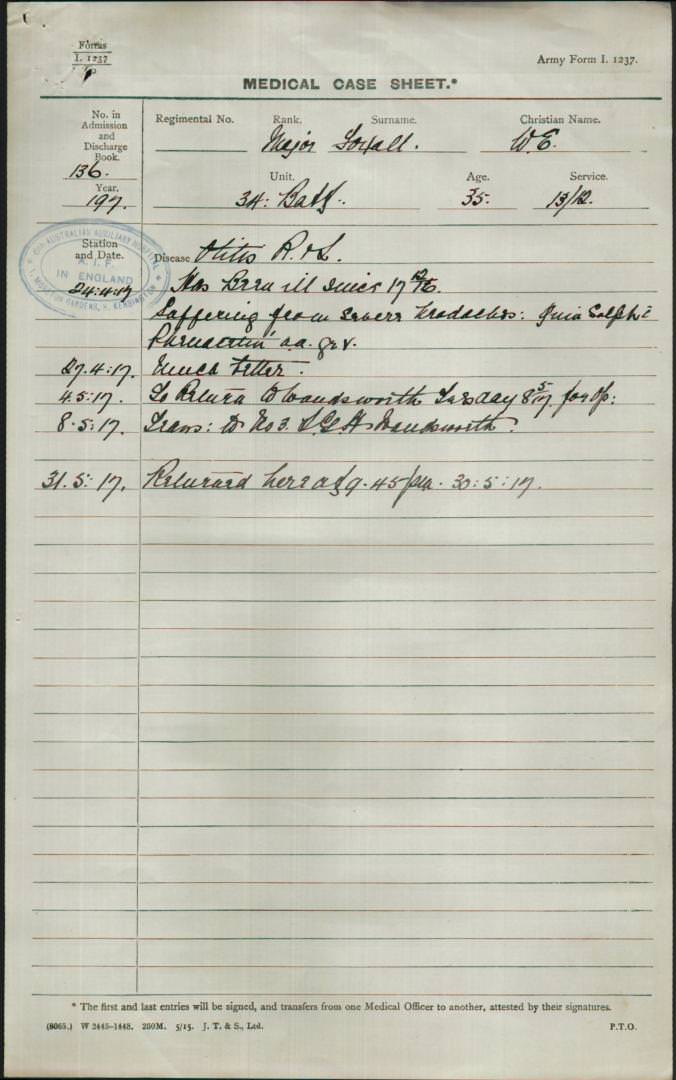 Forms
I. 1237
Army Form I. 1237.
MEDICAL CASE SHEET.*
No. in Admission and Discharge Book.
136.
Year.
1917.
Regimental No.
Rank.
Surname.
Christian Name.
Major Foxall.
W.E.
Unit.
Age.
Service.
34: Batt.
35.
13/12.
Station and Date.
AUSTRALIAN AUXILIARY HOSPITAL
A.I.F.
IN ENGLAND
GARDENS, KENSINGTON
24:4:17
Disease Otitis R. & L.
Has Been ill since 17 12/16.
Suffering from Severe Headaches: Quin Sulph c̄
Phenacetin aa. gr v.
27.4:17. Much Better.
4.5:17. To Return to Wandsworth Tuesday 8 5/17 for Op:
8.5:17. Trans: to No 3. L.G.H. Wandsworth.
31.5:17. Returned here at 9.45 pm. 30:5:17.
* The first and last entries will be signed, and transfers from one Medical Officer to another, attested by their signatures.
(8065.) W 2445—1448. 250M. 5/15. J. T. & S., Ltd.
P.T.O.